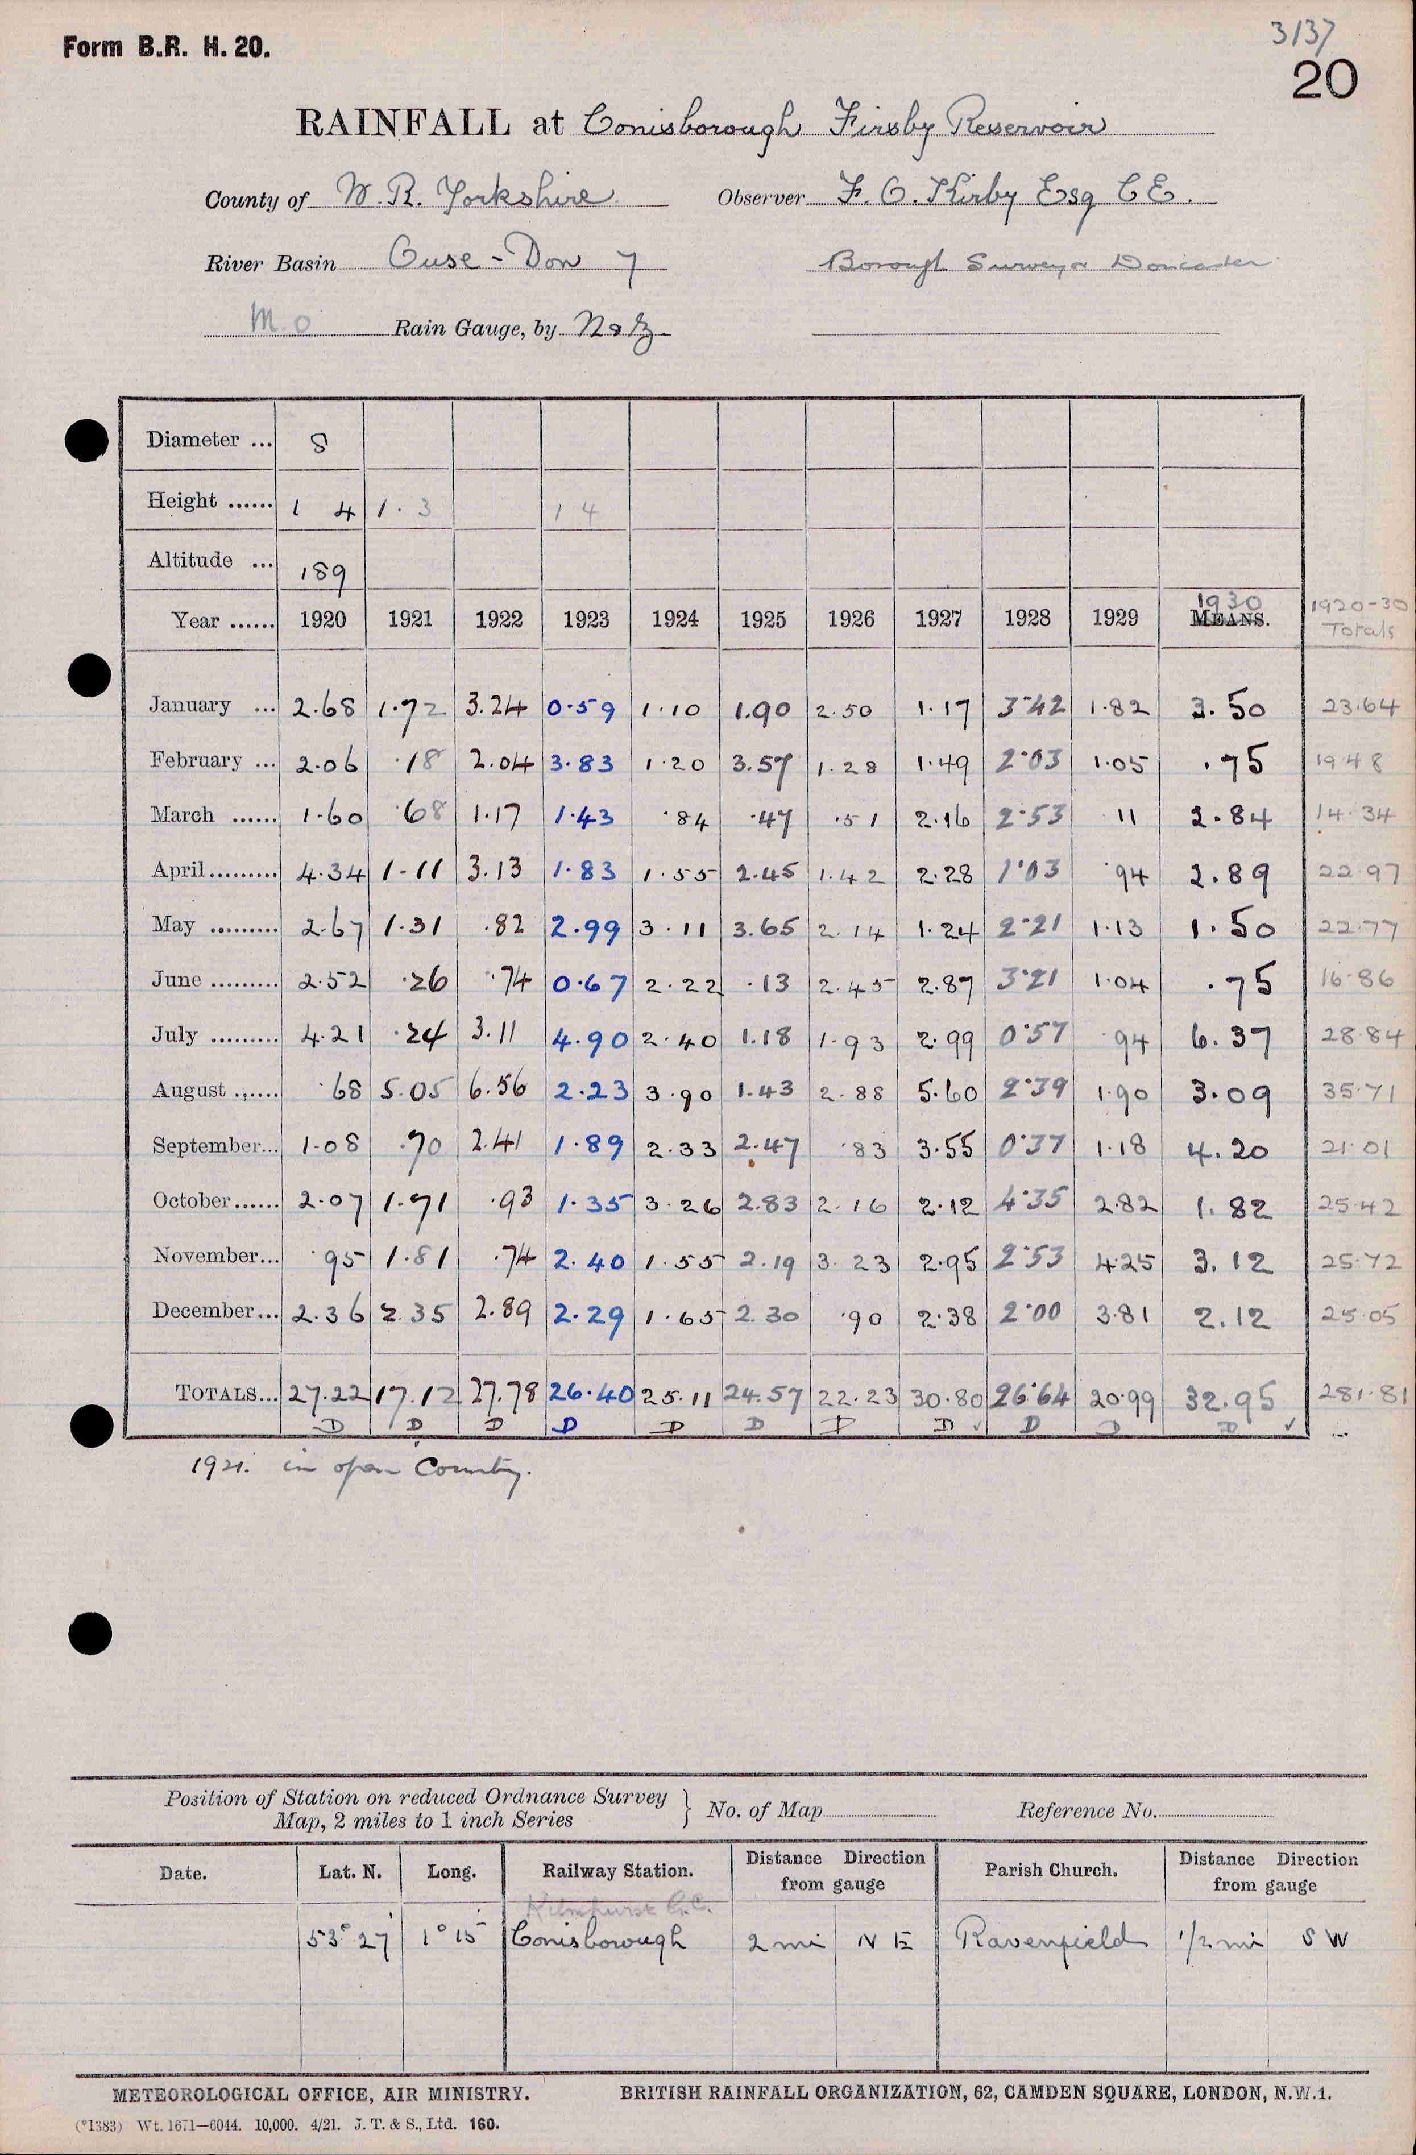 3137
Form B.R. H. 20.
20
RAINFALL at Conisborough Firsby Reservoir
County of W. R. Yorkshire Observer F. O. Kirby Esq C E.
River Basin Ouse - Don 7 Borough Surveyor Doncaster
M. O Rain Gauge, by N & Z
Diameter ... 8
Height ...... 1 4 1.3 1 4
Altitude ... 189
Year ...... 1920 1921 1922 1923 1924 1925 1926 1927 1928 1929 1930 MEANS. 1920-30 Totals
January ... 2.68 1.72 3.24 0.59 1.10 1.90 2.50 1.17 3.42 1.82 3.50 23.64
February ... 2.06 .18 2.04 3.83 1.20 3.57 1.28 1.49 2.03 1.05 .75 19.48
March ...... 1.60 .68 1.17 1.43 .84 .47 .51 2.16 2.53 11 2.84 14.34
April......... 4.34 1.11 3.13 1.83 1.55 2.45 1.42 2.28 1.03 .94 2.89 22.97
May ......... 2.67 1.31 .82 2.99 3.11 3.65 2.14 1.24 2.21 1.13 1.50 22.77
June ......... 2.52 .26 .74 0.67 2.22 .13 2.45 2.87 3.21 1.04 .75 16.86
July ......... 4.21 .24 3.11 4.90 2.40 1.18 1.93 2.99 0.57 .94 6.37 28.84
August ...... .68 5.05 6.56 2.23 3.90 1.43 2.88 5.60 2.39 1.90 3.09 35.71
September... 1.08 .70 2.41 1.89 2.33 2.47 .83 3.55 0.37 1.18 4.20 21.01
October...... 2.07 1.71 .93 1.35 3.26 2.83 2.16 2.12 4.35 2.82 1.82 25.42
November... .95 1.81 .74 2.40 1.55 2.19 3.23 2.95 2.53 4.25 3.12 25.72
December... 2.36 2.35 2.89 2.29 1.65 2.30 .90 2.38 2.00 3.81 2.12 25.05
TOTALS... 27.22 17.12 27.78 26.40 25.11 24.57 22.23 30.80 26.64 20.99 32.95 281.81
D D D D D D D D ✓ D D D ✓
1921. in open County.
Position of Station on reduced Ordnance Survey
Map, 2 miles to 1 inch Series } No. of Map Reference No.
Date. Lat. N. Long. Railway Station. Distance Direction from gauge Parish Church. Distance Direction from gauge
Kilnhurst G.C.
53° 27' 1° 15' Conisborough 2 mi N E Ravenfield 1/2 mi S W
METEOROLOGICAL OFFICE, AIR MINISTRY. BRITISH RAINFALL ORGANIZATION, 62, CAMDEN SQUARE, LONDON, N.W.1.
(*1383) Wt. 1671—6044. 10,000. 4/21. J. T. & S., Ltd. 160.